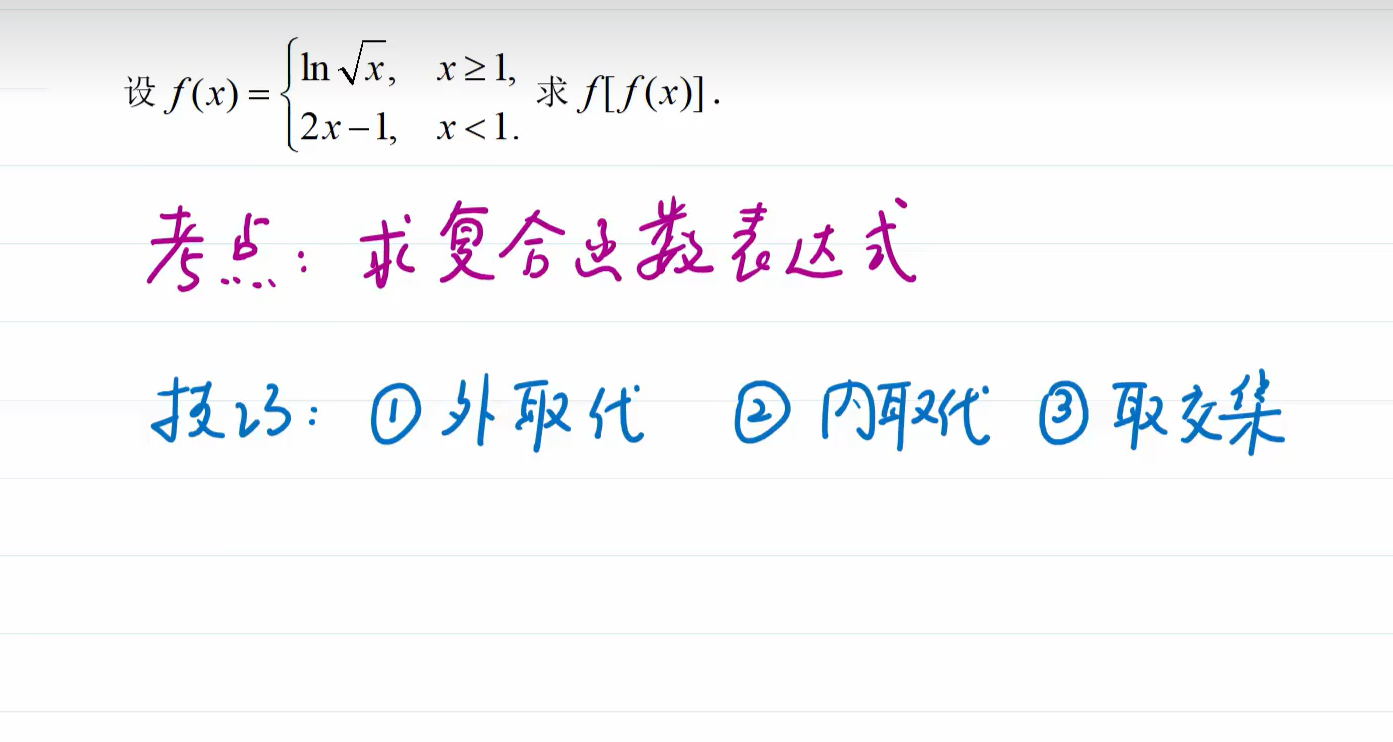 设 f(x) = { ln √x, x ≥ 1, 2x − 1, x < 1. 求 f[f(x)].
考点：求复合函数表达式
技巧：① 外取代 ② 内取代 ③ 取交集